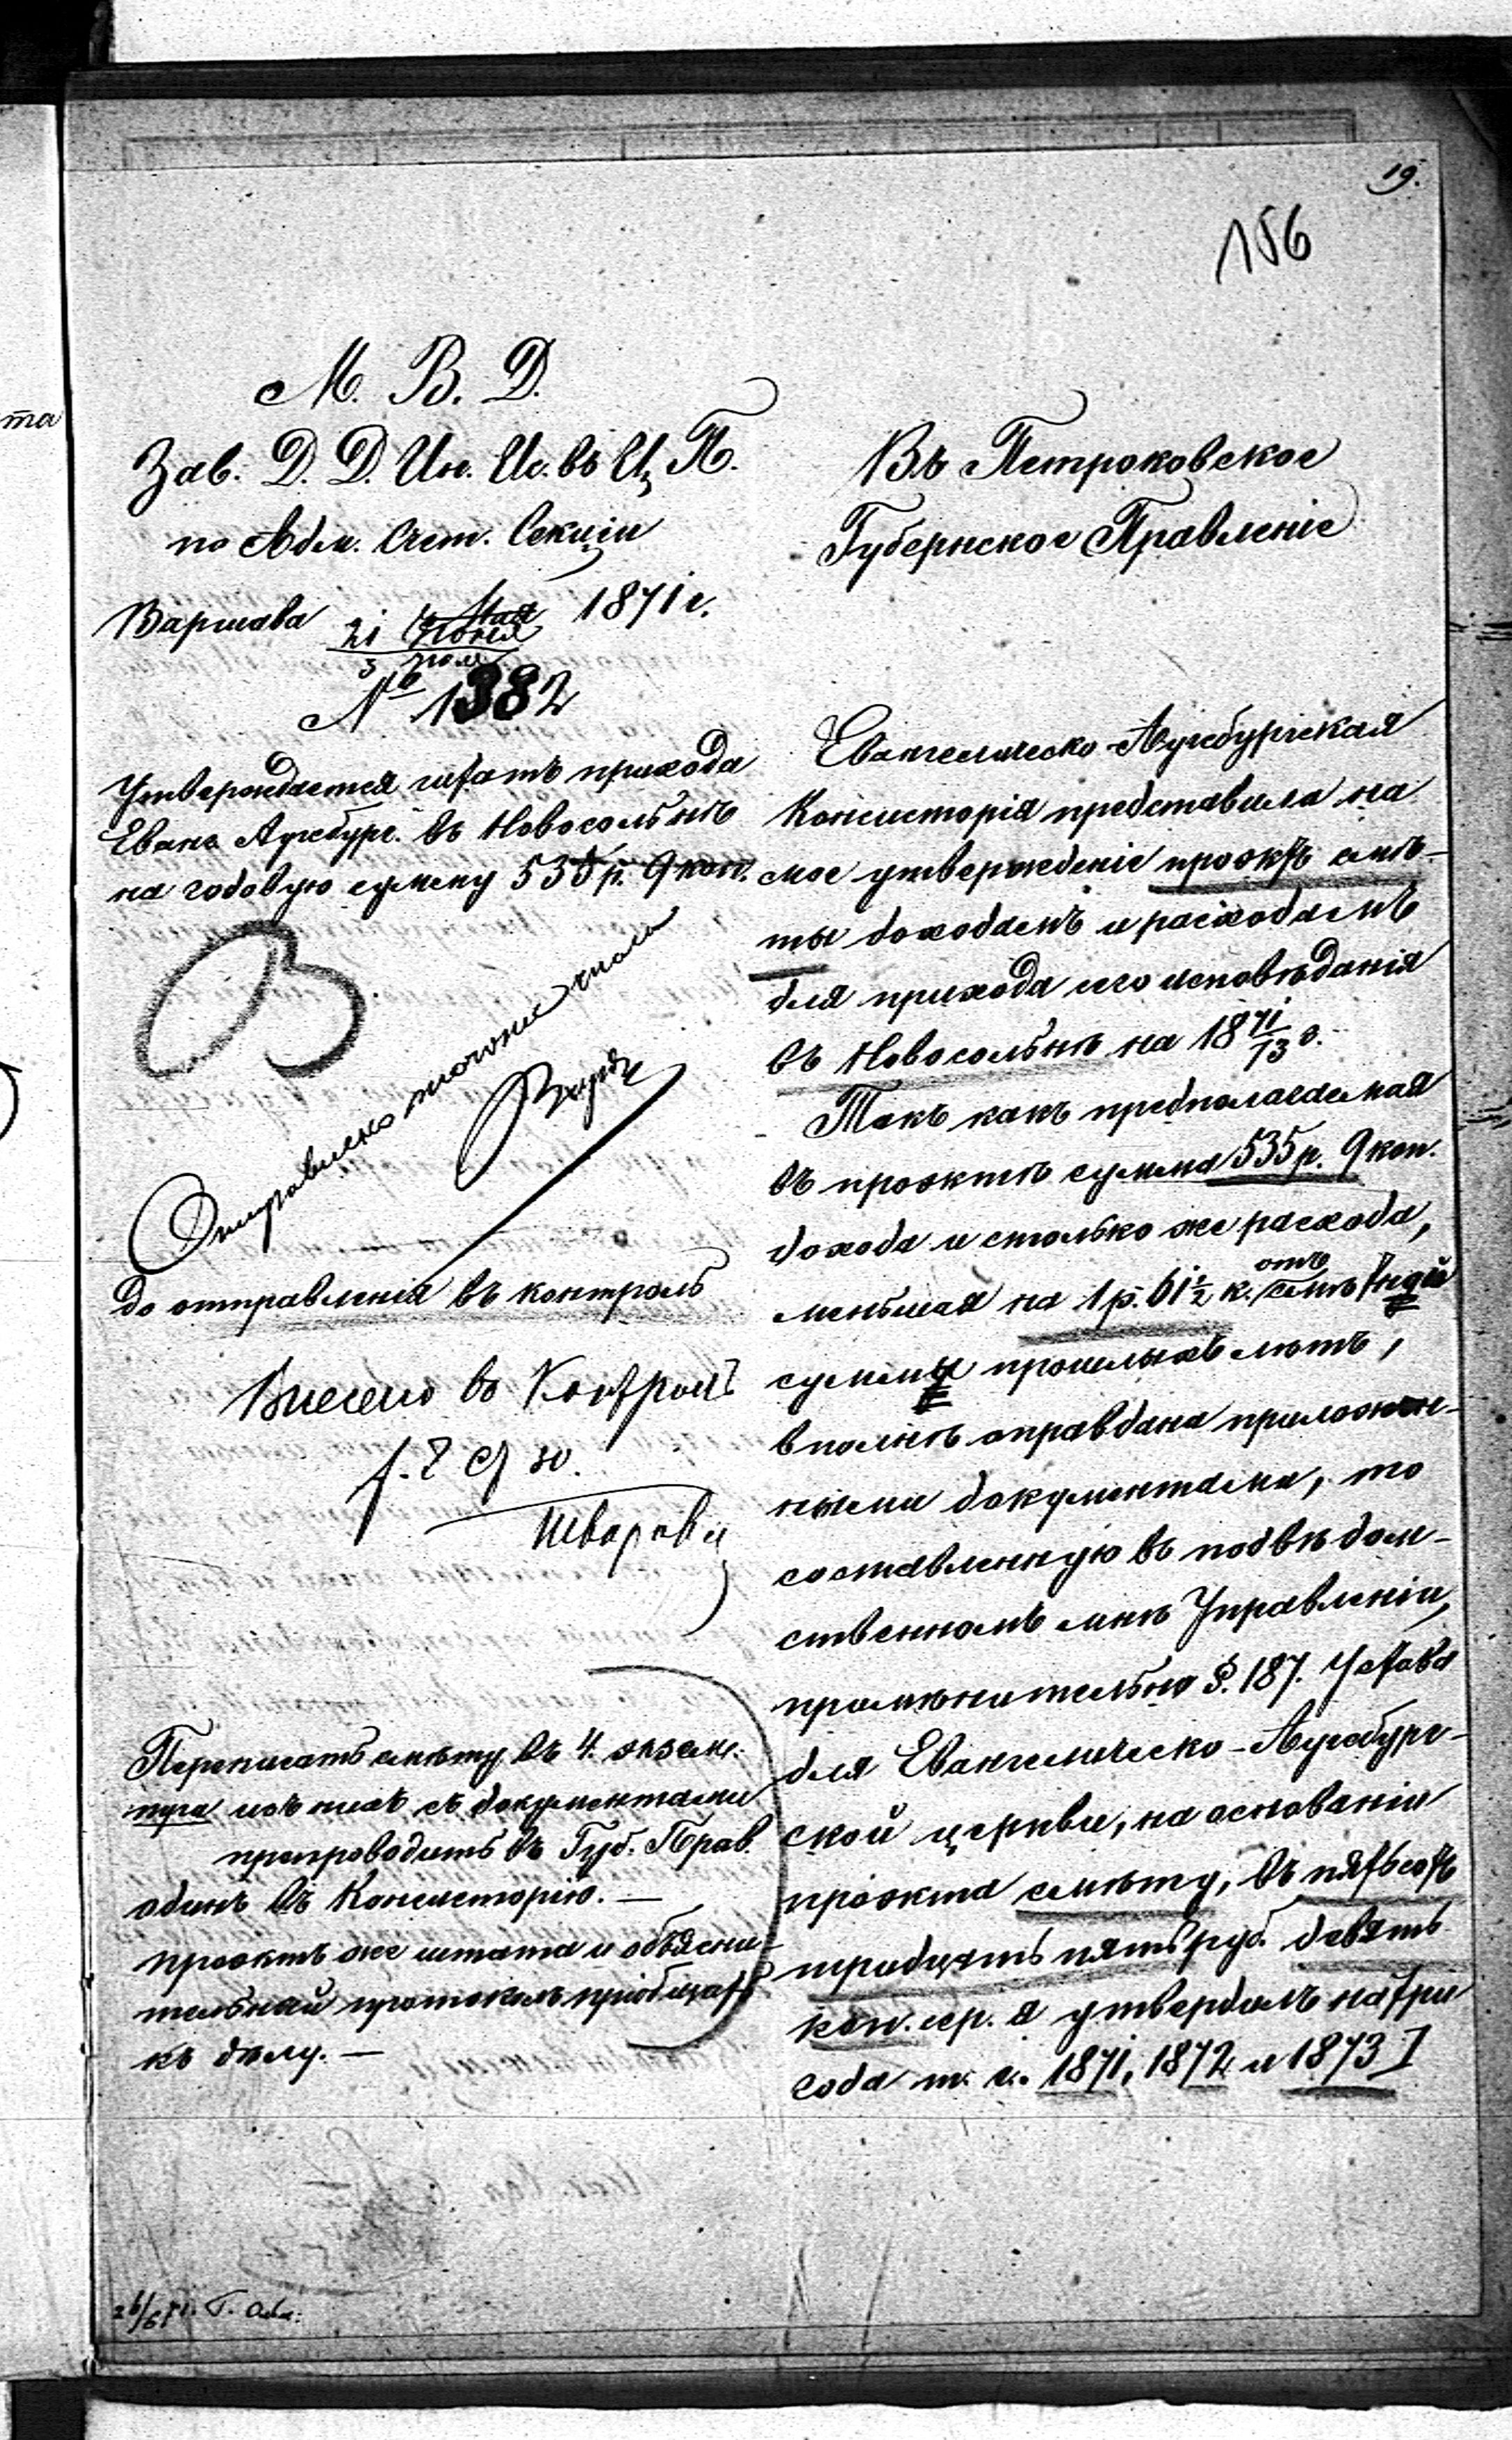 19.
156
М. В. Д.
Зав. Д. Д. Ин. Ис. въ Ц. П.
по Адм. Счет. Секціи
Варшава 21 Іюня 1871 г.
3 Іюля
№ 1382
Утверждается штатъ прихода
Еванг. Аугсбург. въ Новосольнѣ
на годовую сумму 535 р. 9 коп.
Отправлено того же числа
до отправленія въ контроль
Внесено въ Контроль
Переписать смѣту въ 4. экзем.
изъ нихъ съ документами
препроводить въ Губ. Прав.
одинъ въ Консисторію. —
проэктъ же штата и объясни-
тельный протоколъ пріобщить
къ дѣлу. —
Въ Петроковское
Губернское Правленіе
Евангелическо-Аугсбургская
Консисторія представила на
мое утвержденіе проэктъ смѣ-
ты доходамъ и расходамъ
для прихода сего исповѣданія
въ Новосольнѣ на 1871/73 г.
Такъ какъ предполагаемая
въ проэктѣ сумма 535 р. 9 коп.
дохода и столько же расхода,
меньшая на 1 р. 61½ к. отъ
суммы прошлыхъ лѣтъ,
вполнѣ оправдана приложен-
ными документами, то
составленную въ подвѣдом-
ственномъ мнѣ Управленіи,
примѣнительно §. 187. Устава
для Евангелическо-Аугсбург-
ской церкви, на основаніи
проэкта смѣту, въ пятьсотъ
тридцать пять руб. девять
коп. сер. я утвердилъ на три
года т. е. 1871, 1872 и 1873